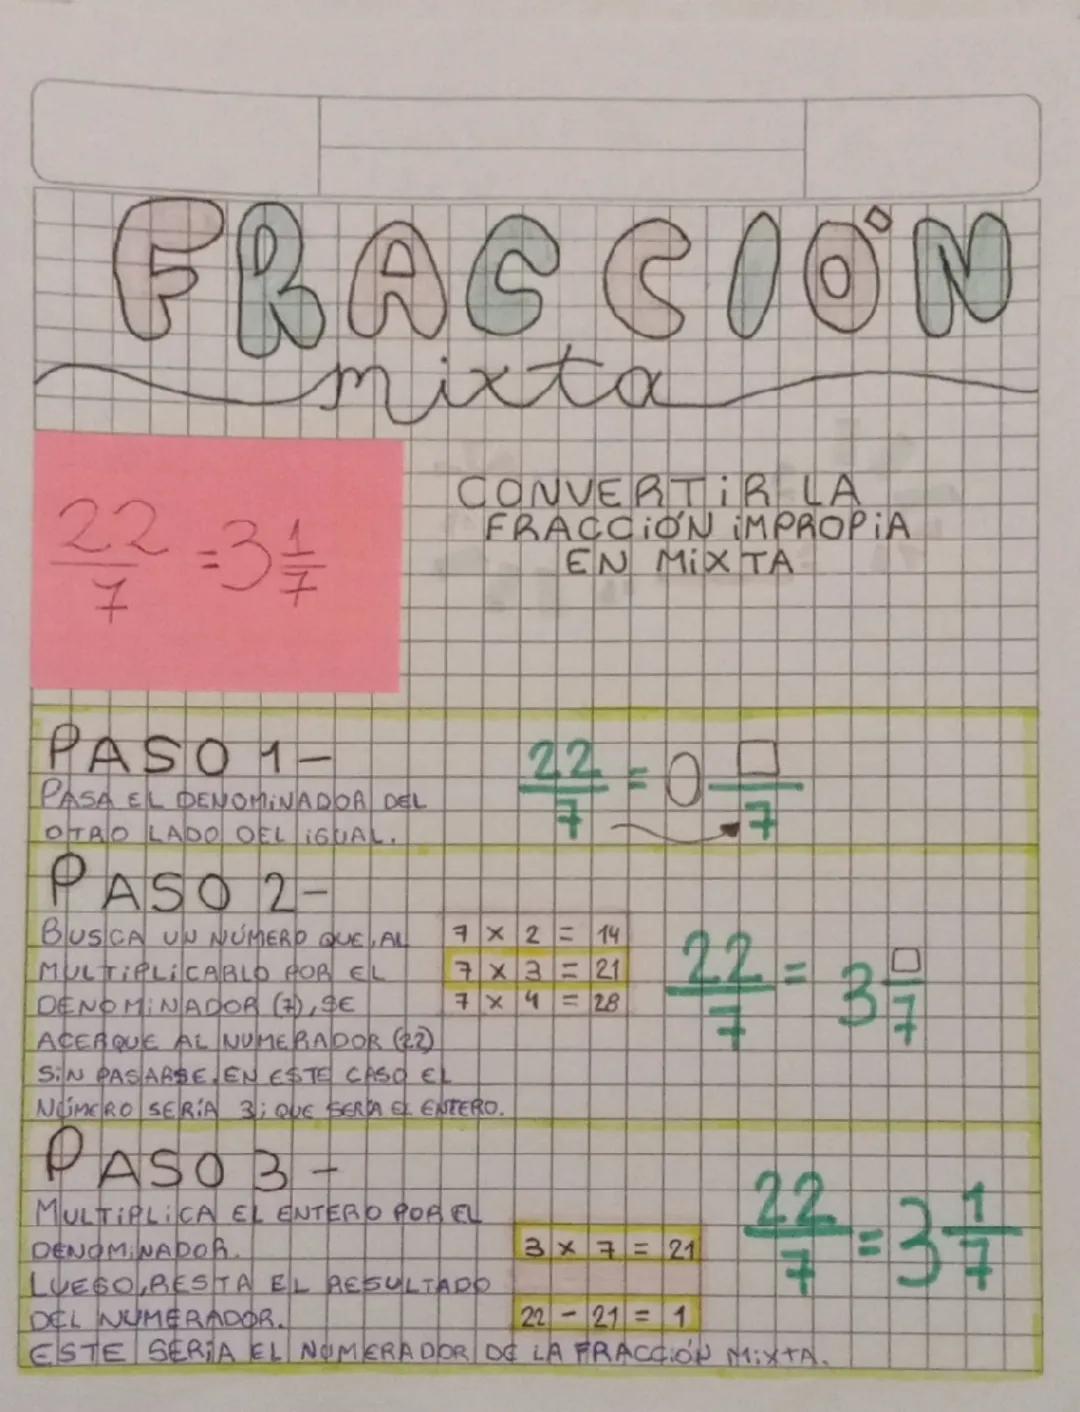 FRACCIÓN
mixta
22/7 = 3 1/7
CONVERTIR LA
FRACCIÓN IMPROPIA
EN MIXTA
PASO 1-
PASA EL DENOMINADOR DEL
OTRO LADO DEL IGUAL.
22/7 = 0 □/7
PASO 2-
BUSCA UN NÚMERO QUE, AL
MULTIPLICARLO POR EL
DENOMINADOR (7), SE
ACERQUE AL NUMERADOR (22)
SIN PASARSE. EN ESTE CASO EL
NÚMERO SERÍA 3; QUE SERÍA EL ENTERO.
7 x 2 = 14
7 x 3 = 21
7 x 4 = 28
22/7 = 3 □/7
PASO 3-
MULTIPLICA EL ENTERO POR EL
DENOMINADOR.
LUEGO, RESTA EL RESULTADO
DEL NUMERADOR.
ESTE SERÍA EL NUMERADOR DE LA FRACCIÓN MIXTA.
3 x 7 = 21
22 - 21 = 1
22/7 = 3 1/7